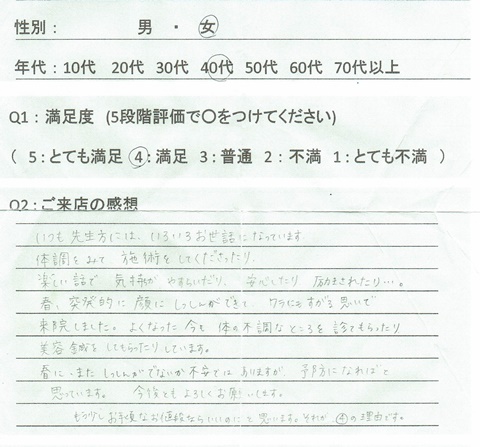 性別： 男 ・ 女
年代：10代 20代 30代 40代 50代 60代 70代以上
Q1：満足度 (5段階評価で○をつけてください)
( 5：とても満足 4：満足 3：普通 2：不満 1：とても不満 )
Q2：ご来店の感想
いつも先生方には、いろいろお世話になっています
体調をみて 施術をしてくださったり、
楽しい話で 気持がやすらいだり、安心したり 励まされたり…。
春、突発的に 顔にしっしんができて、ワラにもすがる思いで
来院しました。よくなった今も 体の不調なところを診てもらったり
美容鍼をしてもらったりしています。
春に、またしっしんがでないか不安ではありますが、予防になればと
思っています。 今後ともよろしくお願いします。
もう少しお手頃なお値段ならいいのにと思います。それが④の理由です。